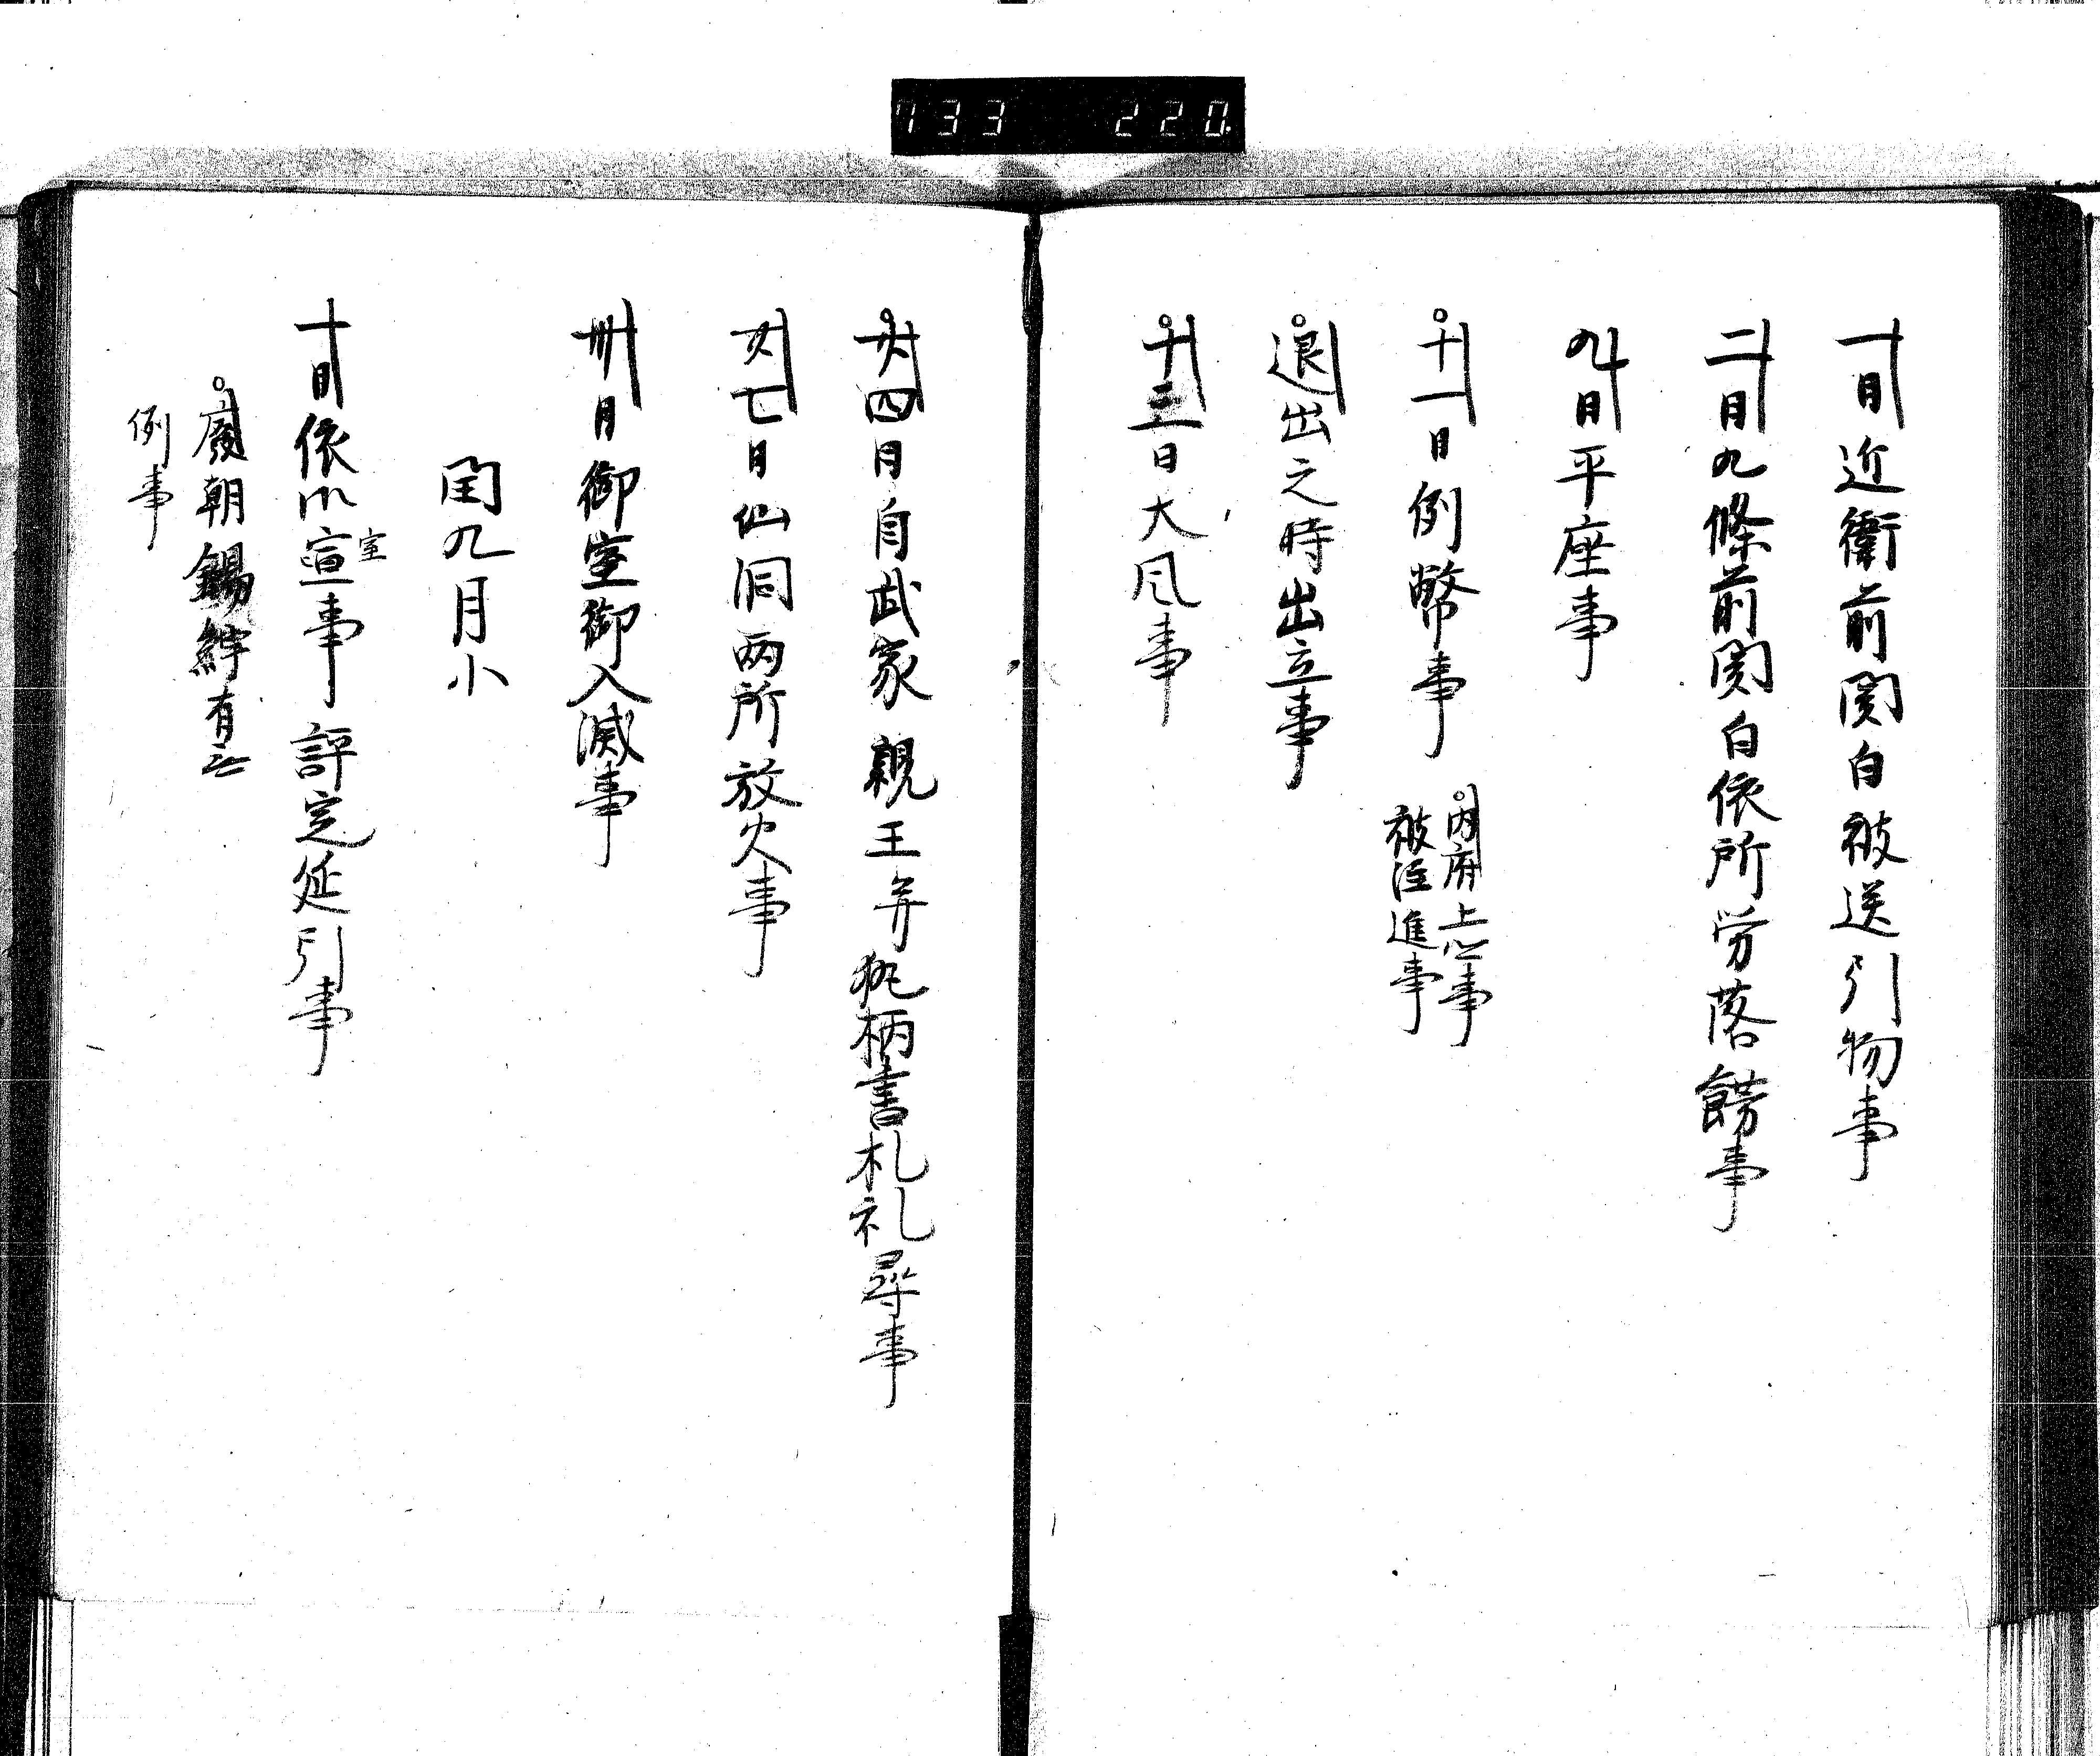 733 220
一日近衛前関白被送引物事
二日九條前関白依所労落餝事
九日平座事
十一日例幣事
内府上 事
被 進事
退出之時出立事
十三日大風事
廿四日自武家親王并執柄書札礼尋事
廿七日仙洞両所放火事
卅日御室御入滅事
閏九月小
十日依 宣事評定延引事
室
廃朝錫紵有無
例事